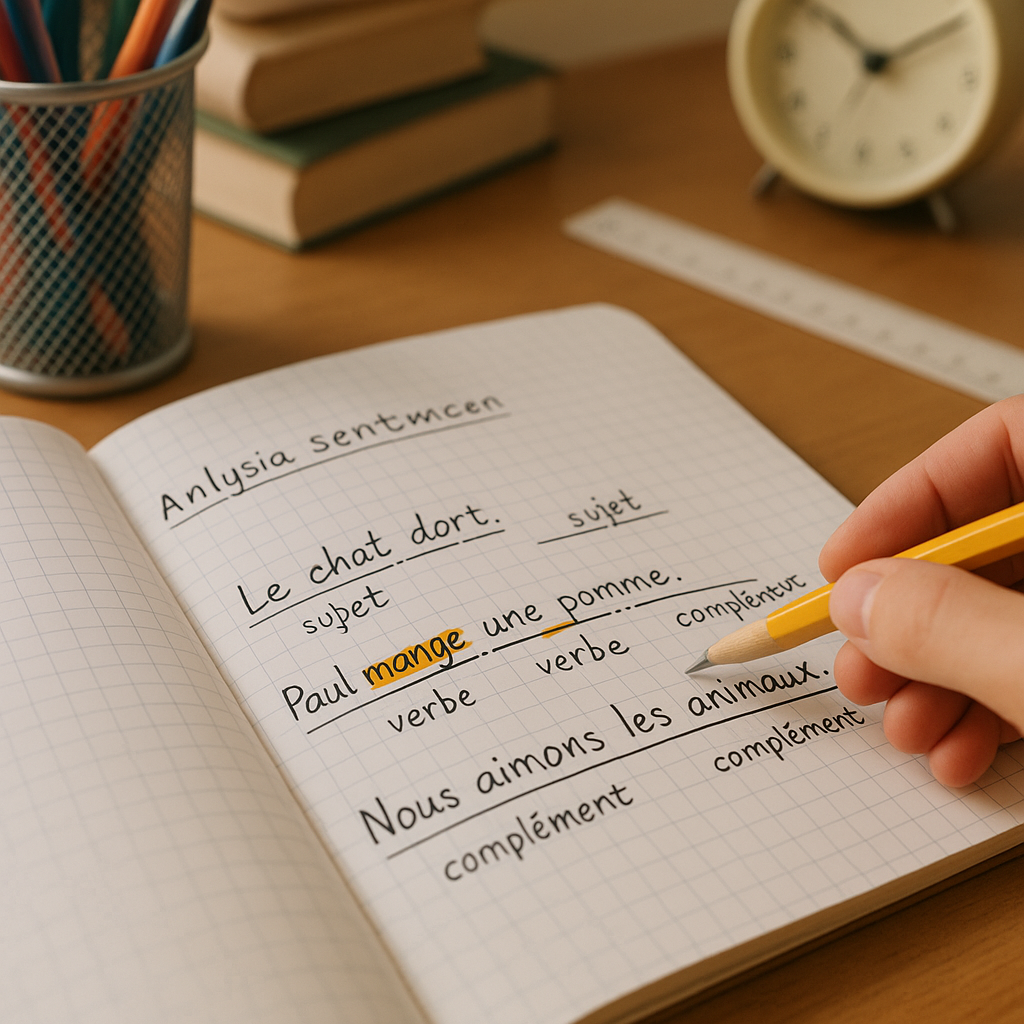 Anlysia sentmcen
Le chat dort. sujet
sujet
Paul mange une pomme.
verbe verbe compléntut
Nous aimons les animaux.
complément complément